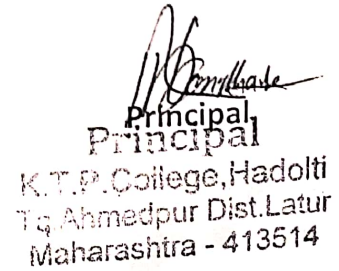 Principal
Principal
K.T.P. College, Hadolti
Tq. Ahmedpur Dist. Latur
Maharashtra - 413514